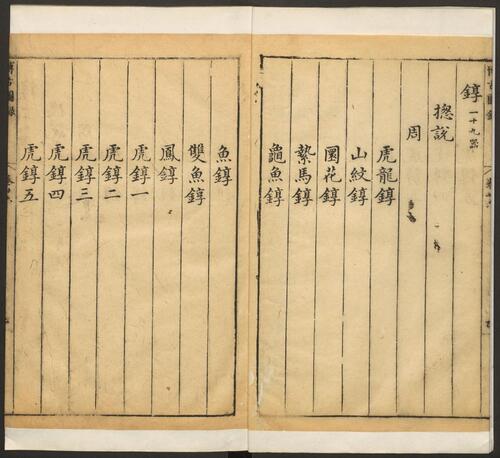 錞一十九器
揔說
周
虎龍錞
山紋錞
圜花錞
縶馬錞
龜魚錞
魚錞
雙魚錞
鳳錞
虎錞一
虎錞二
虎錞三
虎錞四
虎錞五